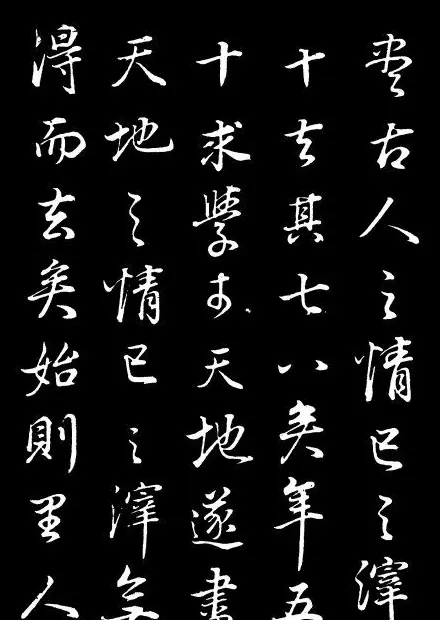 盡古人之情已之滓
十去其七八矣年五
十求學於天地遂書
天地之情已之滓
得而去矣始則里人